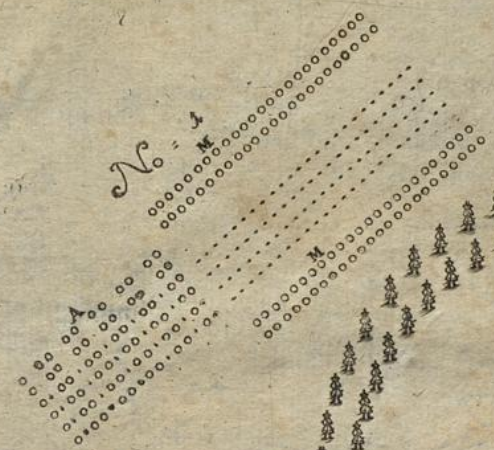 No = 1
M
M
A